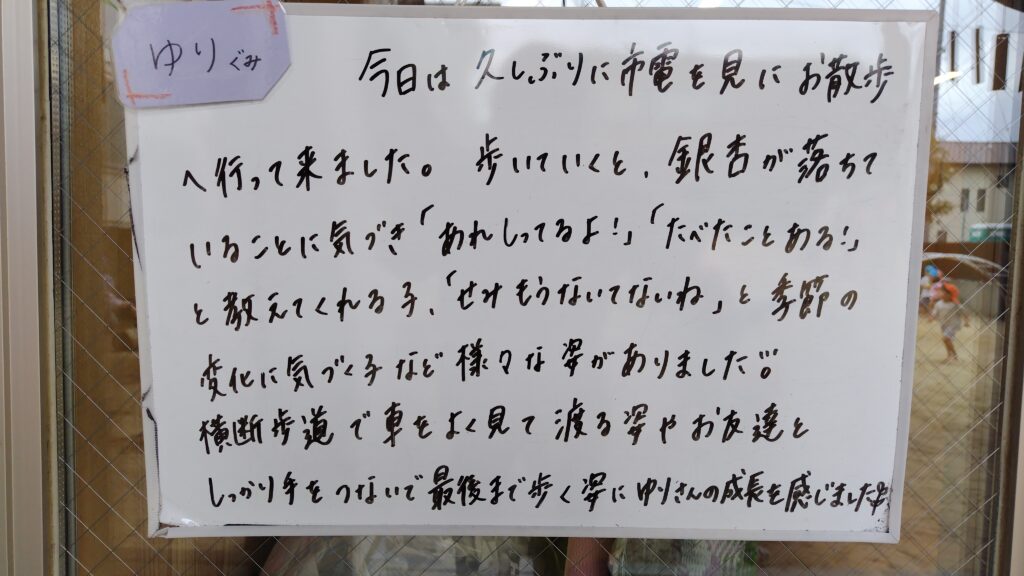 ゆりぐみ
今日は久しぶりに市電を見にお散歩
へ行って来ました。歩いていくと、銀杏が落ちて
いることに気づき「あれしってるよ!」「たべたことある!」
と教えてくれる子、「せみもうないてないね」と季節の
変化に気づく子など様々な姿がありました。
横断歩道で車をよく見て渡る姿やお友達と
しっかり手をつないで最後まで歩く姿にゆりさんの成長を感じました